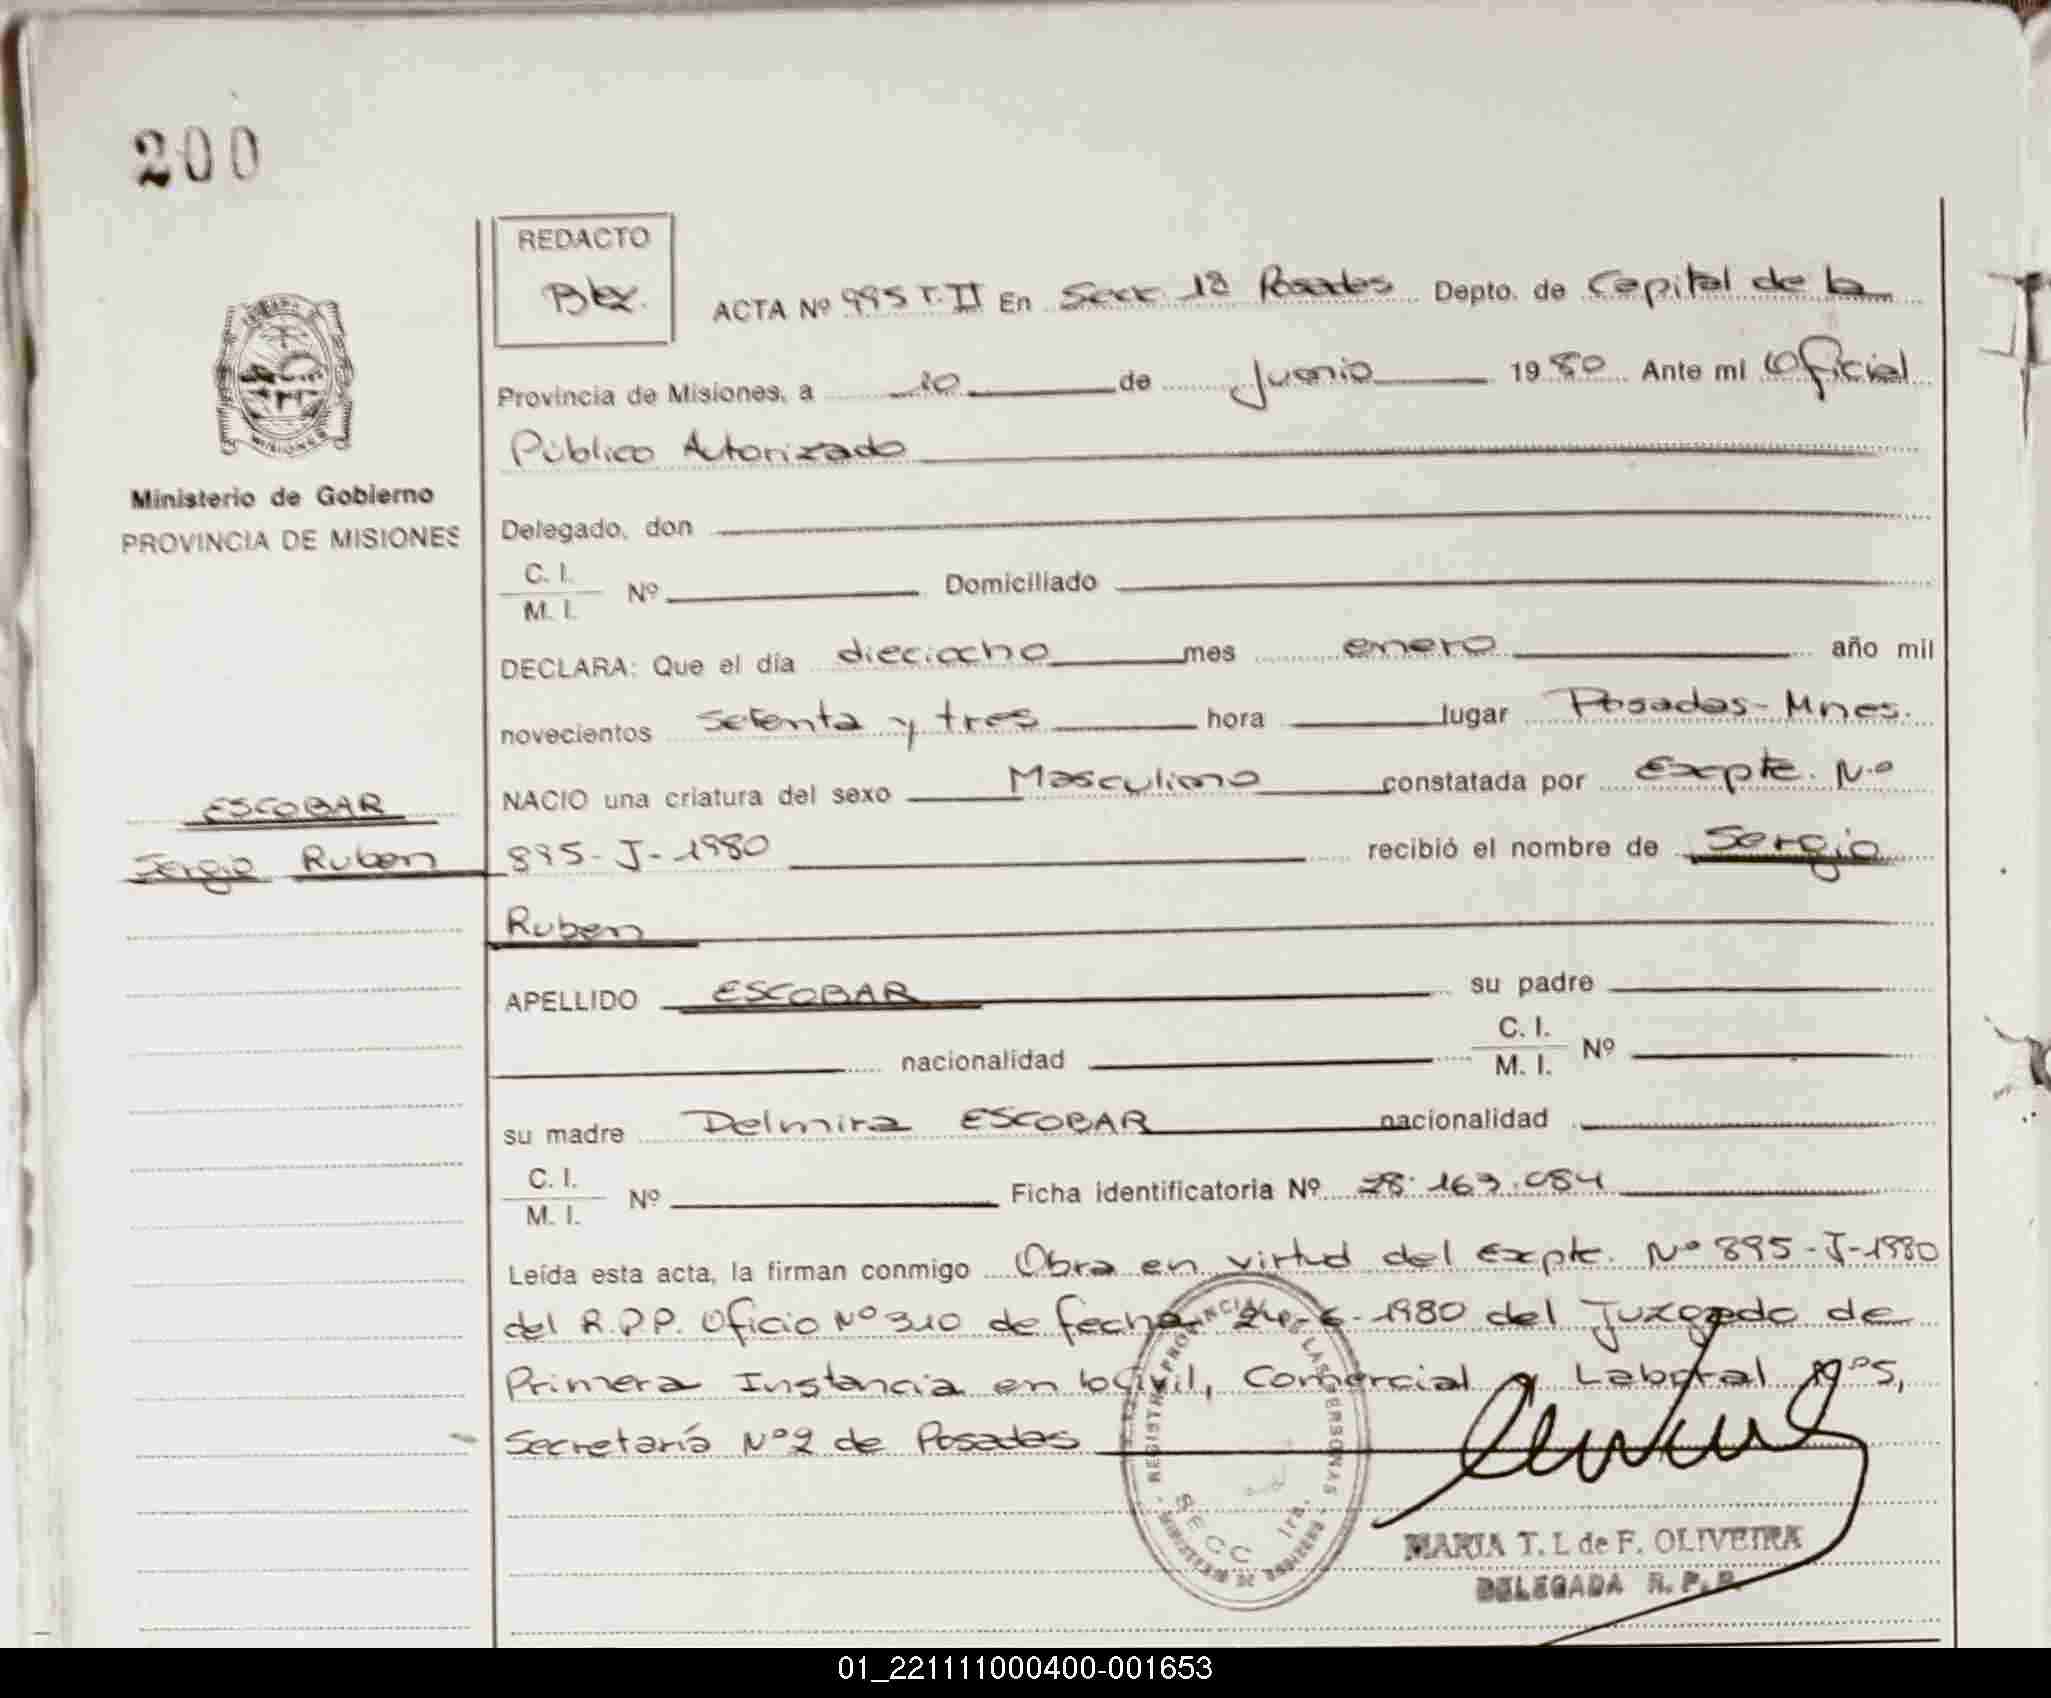 200
REDACTO
ACTA Nº 995 T. II En Secc. 1a Posadas Depto. de Capital de la
Provincia de Misiones, a 10 de Junio 1980 Ante mi Oficial
Público Autorizado
Delegado, don
C. I.
M. I. Nº Domiciliado
Ministerio de Gobierno
PROVINCIA DE MISIONES
DECLARA: Que el día dieciocho mes enero año mil
novecientos setenta y tres hora lugar Posadas - Mnes.
NACIO una criatura del sexo Masculino constatada por Expte. N.º
ESCOBAR
Sergio Ruben
895 - J - 1980 recibió el nombre de Sergio
Ruben
APELLIDO ESCOBAR su padre
nacionalidad C. I.
M. I. Nº
su madre Delmira ESCOBAR nacionalidad
C. I.
M. I. Nº Ficha identificatoria Nº 28.163.084
Leída esta acta, la firman conmigo Obra en virtud del Expte. Nº 895 - J - 1980
del R.P.P. Oficio Nº 310 de fecha 24-6-1980 del Juzgado de
Primera Instancia en lo Civil, Comercial y Laboral Nº 5,
Secretaría Nº 2 de Posadas
REGISTRO PROVINCIAL DE LAS PERSONAS
SECC 1ra.
MARIA T. L de F. OLIVEIRA
DELEGADA R. P. P.
01_221111000400-001653